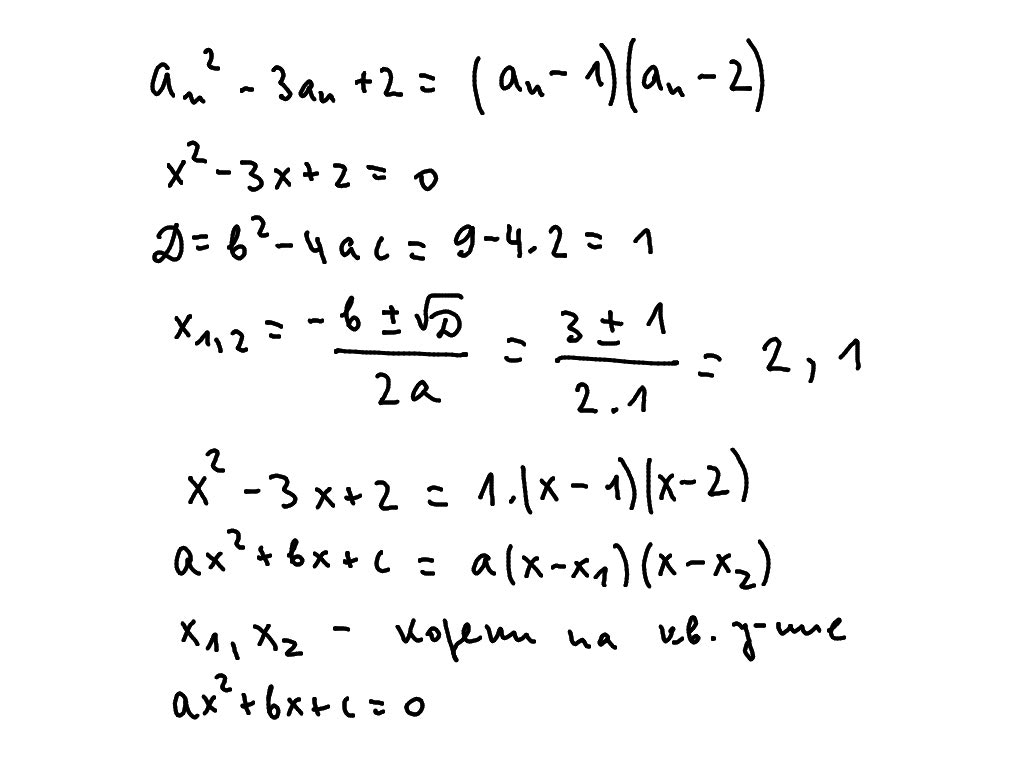 aₙ² - 3aₙ + 2 = (aₙ - 1)(aₙ - 2)
x² - 3x + 2 = 0
D = b² - 4ac = 9 - 4.2 = 1
x₁,₂ = (-b ± √D) / 2a = (3 ± 1) / 2.1 = 2, 1
x² - 3x + 2 = 1.(x - 1)(x - 2)
ax² + bx + c = a(x - x₁)(x - x₂)
x₁, x₂ - корени на кв. у-ние
ax² + bx + c = 0